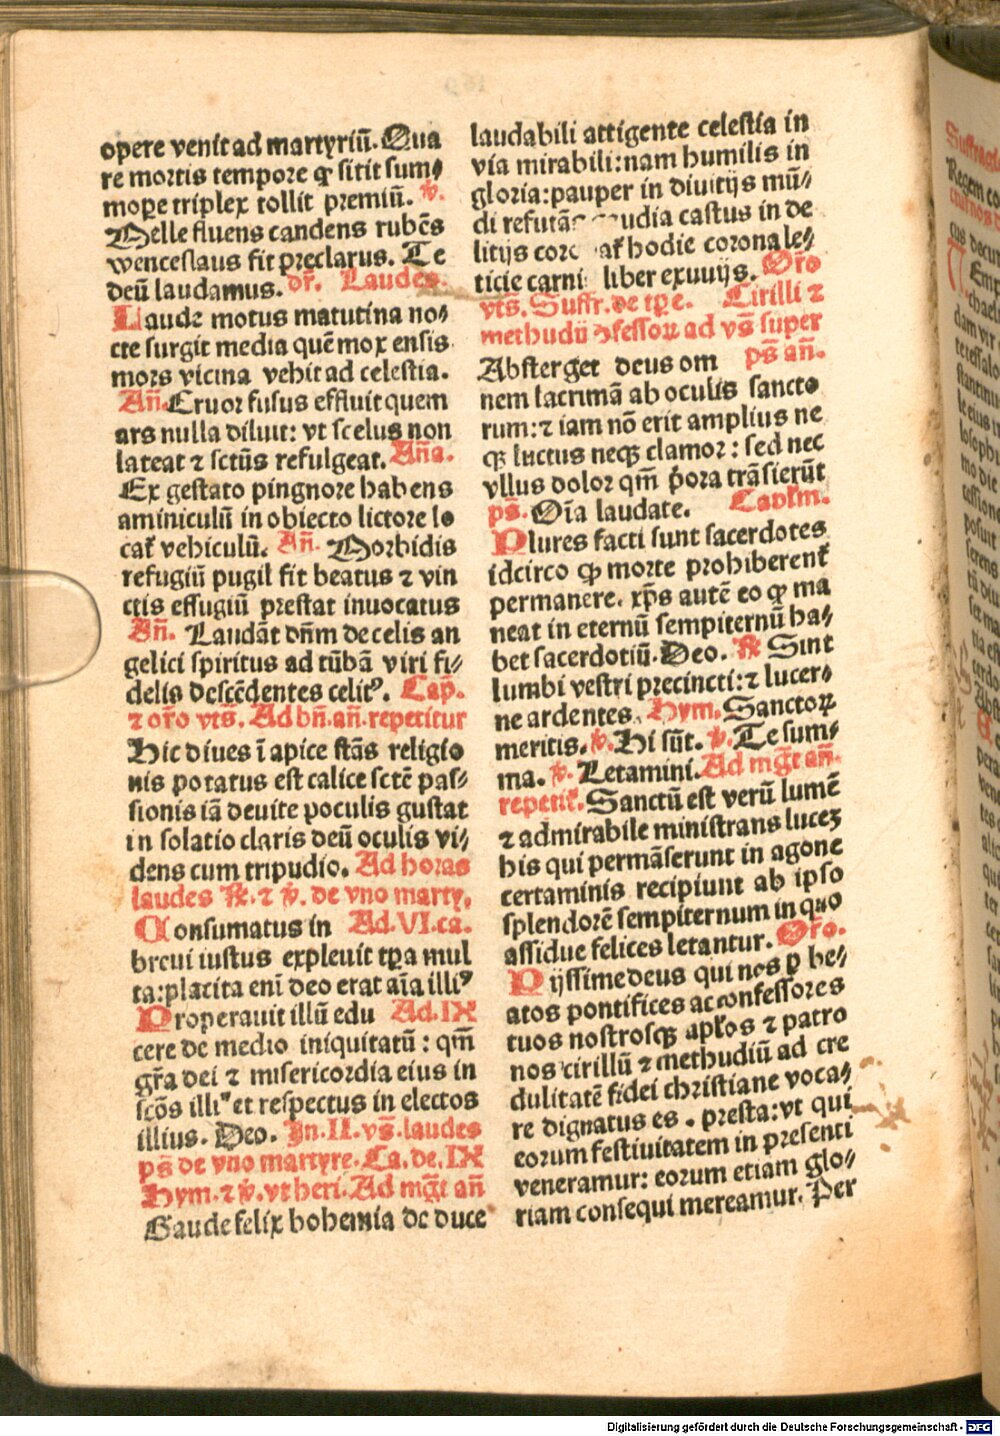 opere venit ad martyriũ. Qua
re mortis tempore q̃ sitit sum⸗
mope triplex tollit premiũ. ꝟ.
Melle fluens candens rubẽs
wenceslaus fit preclarus. Te
deũ laudamus. dr̃. Laudes.
Laude motus matutina no⸗
cte surgit media quẽ mox ensis
mors vicina vehit ad celestia.
Añ. Cruor fusus effluit quem
ars nulla diluit: vt scelus non
lateat ⁊ sctũs refulgeat. Aña.
Ex gestato pingnore habens
aminiculũ in obiecto lictore lo
cat̃ vehiculũ. Añ. Morbidis
refugiũ pugil fit beatus ⁊ vin
ctis effugiũ prestat inuocatus
Añ. Laudãt dñm de celis an
gelici spiritus ad tũbã viri fi⸗
delis descẽdentes celitꝰ. Cap̃.
⁊ or̃o vts̃. Ad bñ. añ. repetitur
Hic diues ĩ apice stãs religio
nis potatus est calice sctẽ pas⸗
sionis iã deuite poculis gustat
in solatio claris deũ oculis vi⸗
dens cum tripudio. Ad horas
laudes ℟. ⁊ ꝟ. de vno marty.
Consumatus in Ad. VI. ca.
breui iustus expleuit tꝑa mul
ta: placita eni deo erat aĩa illiꝰ
Properauit illũ edu Ad. IX
cere de medio iniquitatũ: qm̃
gr̃a dei ⁊ misericordia eius in
scõs illiꝰ et respectus in electos
illius. Deo. In. II. vs̃. laudes
ps̃ de vno martyre. Ca. de. IX
Hym. ⁊ ꝟ. vt heri. Ad mgr̃t añ
Gaude felix bohemia de duce
laudabili attigente celestia in
via mirabili: nam humilis in
gloria: pauper in diuitijs mũ⸗
di refutãs udia castus in de
litijs coro at̃ hodie corona le⸗
ticie carni liber exuuijs. Or̃o
vts̃. Suffr. de tꝑe. Cirilli ⁊
methudij ꝯfessoꝝ ad vs̃ super
ps̃ añ.
Absterget deus om
nem lacrimã ab oculis sancto
rum: ⁊ iam nõ erit amplius ne
qꝫ luctus neqꝫ clamor: sed nec
vllus dolor qm̃ p̃ora trãsierũt
ps̃. Oĩa laudate. Capl̃m.
Plures facti sunt sacerdotes
idcirco ꝙ morte prohiberent̃
permanere. xp̃s autẽ eo ꝙ ma
neat in eternũ sempiternũ ha⸗
bet sacerdotiũ. Deo. ℟ Sint
lumbi vestri precincti: ⁊ lucer⸗
ne ardentes. Hym. Sanctoꝝ
meritis. ꝟ. Hi sũt. ꝟ. Te sum⸗
ma. ꝟ. Letamini. Ad mgr̃t añ.
repetit̃. Sanctũ est verũ lumẽ
⁊ admirabile ministrans luceꝫ
his qui permãserunt in agone
certaminis recipiunt ab ipso
splendorẽ sempiternum in quo
assidue felices letantur. Or̃o.
Pijssime deus qui nos ꝑ be⸗
atos pontifices ac confessores
tuos nostrosqꝫ apl̃os ⁊ patro
nos cirillũ ⁊ methudiũ ad cre
dulitatẽ fidei christiane voca⸗
re dignatus es. presta: vt qui
eorum festiuitatem in presenti
veneramur: eorum etiam glo⸗
riam consequi mereamur. Per
Digitalisierung gefördert durch die Deutsche Forschungsgemeinschaft - DFG